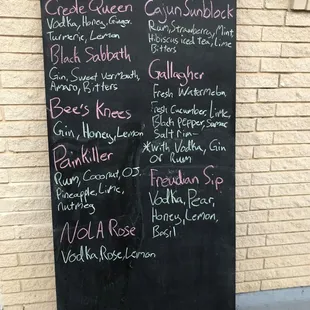 Creole Queen
Vodka, Honey, Ginger,
Turmeric, Lemon
Black Sabbath
Gin, Sweet Vermouth,
Amaro, Bitters
Bee's Knees
Gin, Honey, Lemon
PainKiller
Rum, Coconut, O.J.
Pineapple, Lime,
nutmeg
NOLA Rose
Vodka, Rose, Lemon
Cajun Sunblock
Rum, Strawberry, Mint
Hibiscus iced tea, Lime
Bitters
Gallagher
Fresh Watermelon
Fresh Cucumber, Lime,
Black Pepper, Sumac
Salt rim-
*with Vodka, Gin
or Rum
Freudian Sip
Vodka, Pear,
Honey, Lemon,
Basil